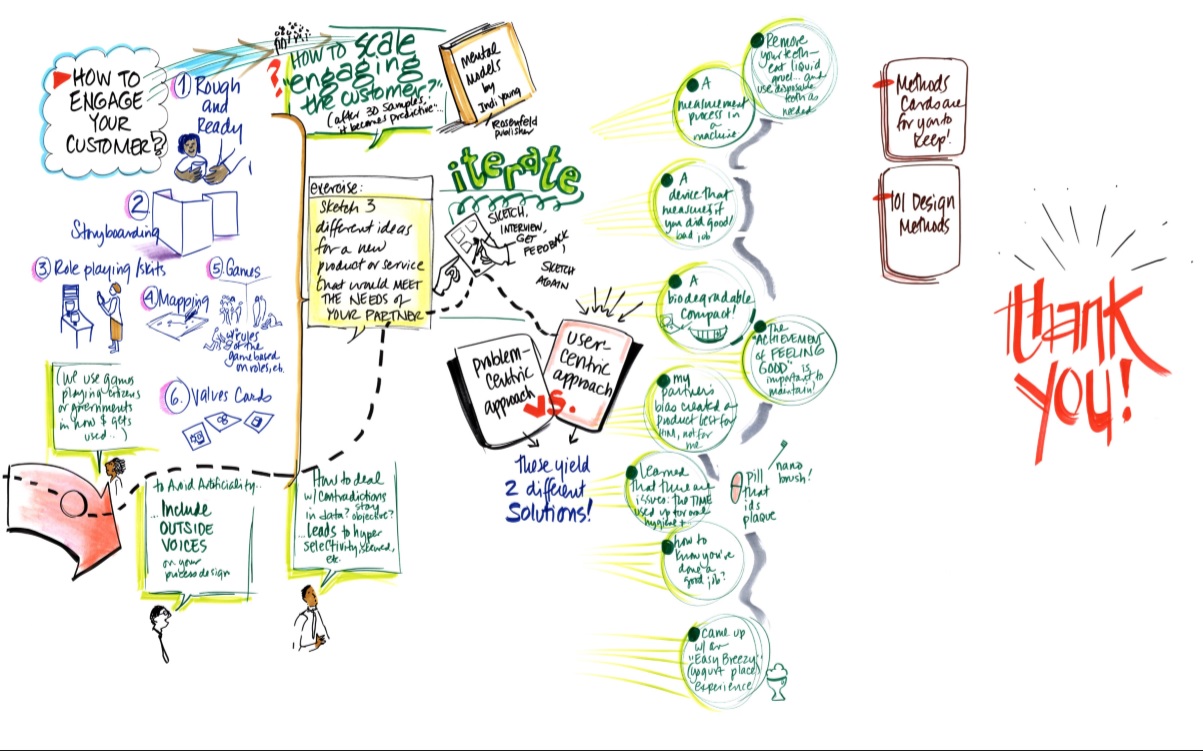 HOW TO
ENGAGE
YOUR
CUSTOMER?
① Rough
and
Ready
②
Storyboarding
③ Role playing/skits
④ Mapping
⑤ Games
w/rules
of the
game based
on roles, etc.
⑥. Values Cards
(We use games
playing citizens
or governments
in how $ gets
used..!)
to Avoid Artificiality...
...Include
OUTSIDE
VOICES
on your
process design
How to deal
w/contradictions
in data? stay
objective?
...Leads to hyper
selectivity, skewed,
etc.
?
HOW TO scale
"engaging
the customer?"
(after 30 samples,
it becomes predictive"...
Mental
Models
by
Indi Young
Rosenfeld
publisher
exercise:
sketch 3
different ideas
for a new
product or service
that would MEET
THE NEEDS of
YOUR PARTNER
iterate
SKETCH,
INTERVIEW,
GET
FEEDBACK,
SKETCH
AGAIN
problem-
centric
approach
vs.
user-
centric
approach
These yield
2 different
Solutions!
Remove
your teeth—
eat liquid
gruel... and
use disposable
teeth as
needed
A
measurement
process in
a
machine
A
device that
measures if
you did good/
bad job
A
biodegradable
compact!
The
"ACHIEVEMENT
of FEELING
GOOD" is
important to
maintain!
my
partner's
bias created a
product best for
HIM, not for
me
learned
that there are
issues: the TIME
used up for oral
hygiene +
pill
that
ids
plaque
nano
brush!
how to
know you've
done a
good job?
came up
w/ an
"Easy Breezy"
(yogurt place)
experience
Methods
Cards are
for you to
keep!
101 Design
Methods
thank
you!